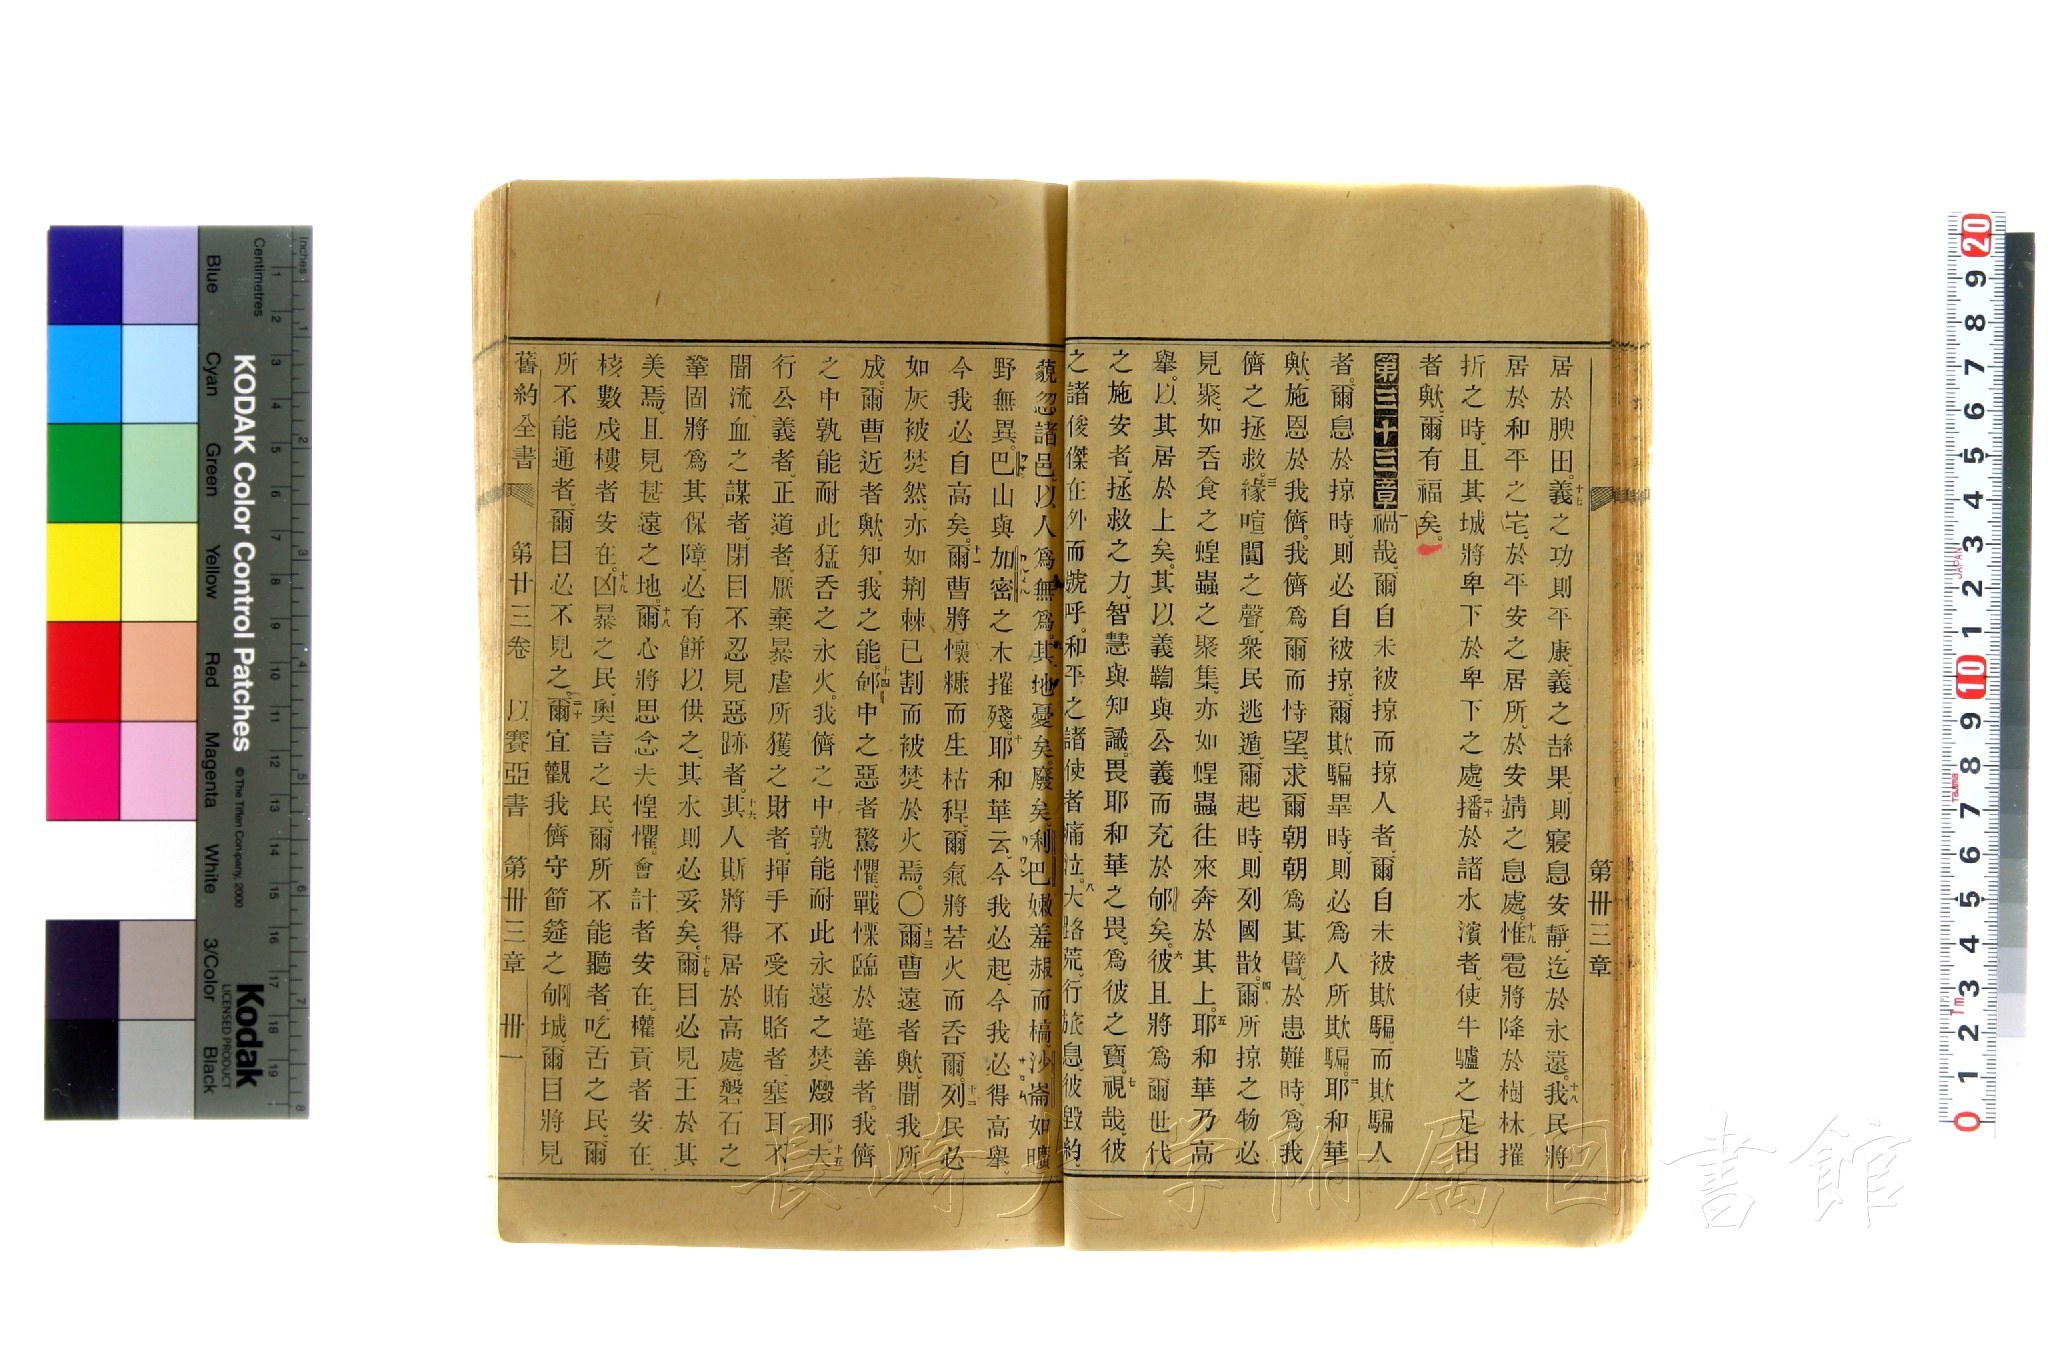 第卅三章
居於腴田。十七義之功則平康、義之結果、則寢息安靜、迄於永遠。十八我民將
居於和平之宅、於平安之居所、於安靖之息處。十九惟雹將降於樹林摧
折之時、且其城將卑下於卑下之處。二十播於諸水濱者、使牛驢之足出
者歟、爾有福矣。
第三十三章一禍哉、爾自未被掠而掠人者、爾自未被欺騙、而欺騙人
者。爾息於掠時、則必自被掠、爾欺騙畢時、則必爲人所欺騙。二耶和華
歟、施恩於我儕。我儕爲爾而恃望、求爾朝朝爲其臂、於患難時、爲我
儕之拯救。三緣喧闐之聲、衆民逃遁、爾起時、則列國散。四爾所掠之物必
見聚、如吞食之蝗蟲之聚集、亦如蝗蟲往來奔於其上。五耶和華乃高
擧。以其居於上矣。其以義韜與公義而充於郇矣。六彼且將爲爾世代
之施安者、拯救之力、智慧與知識。畏耶和華之畏、爲彼之寶。七視哉、彼
之諸俊傑在外而號呼。和平之諸使者痛泣。八大路荒、行旅息、彼毀約、
藐忽諸邑、以人爲無爲。九其地憂矣。廢矣、利巴嫩羞赧而槁、沙崙如曠
野無異。巴山與加密之木摧殘。十耶和華云、今我必起、今我必得高擧、
今我必自高矣。十一爾曹將懷糠而生枯稈、爾氣將若火而吞爾。十二列民必
如灰被焚然、亦如荆棘已割而被焚於火焉。〇十三爾曹遠者歟、聞我所
成。爾曹近者歟、知我之能。十四郇中之惡者驚懼、戰慄臨於違善者。我儕
之中孰能耐此猛吞之永火。我儕之中孰能耐此永遠之焚燬耶。十五夫
行公義者、正道者、厭棄暴虐所獲之財者、揮手不受賄賂者、塞耳不
聞流血之謀者、閉目不忍見惡跡者。十六其人斯將得居於高處、磐石之
鞏固將爲其保障、必有餅以供之、其水則必妥矣。十七爾目必見王於其
美焉、且見甚遠之地。十八爾心將思念夫惶懼、會計者安在、權貢者安在、
核數戍樓者安在。十九凶暴之民、奧言之民、爾所不能聽者、吃舌之民、爾
所不能通者、爾目必不見之。二十爾宜觀我儕守節筵之郇城、爾目將見
舊約全書　第廿三卷　以賽亞書　第卅三章　卅一
KODAK Color Control Patches
©The Tiffen Company, 2000
Kodak
LICENSED PRODUCT
Inches
Centimetres
Blue
Cyan
Green
Yellow
Red
Magenta
White
3/Color
Black
長崎大学附属図書館
JAPAN